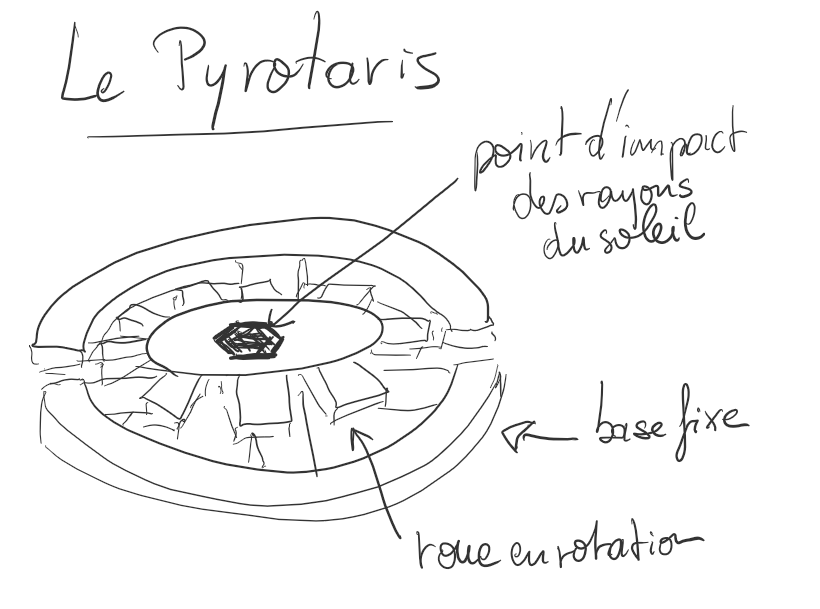 Le Pyrotaris
point d'impact
des rayons
du soleil
base fixe
roue en rotation